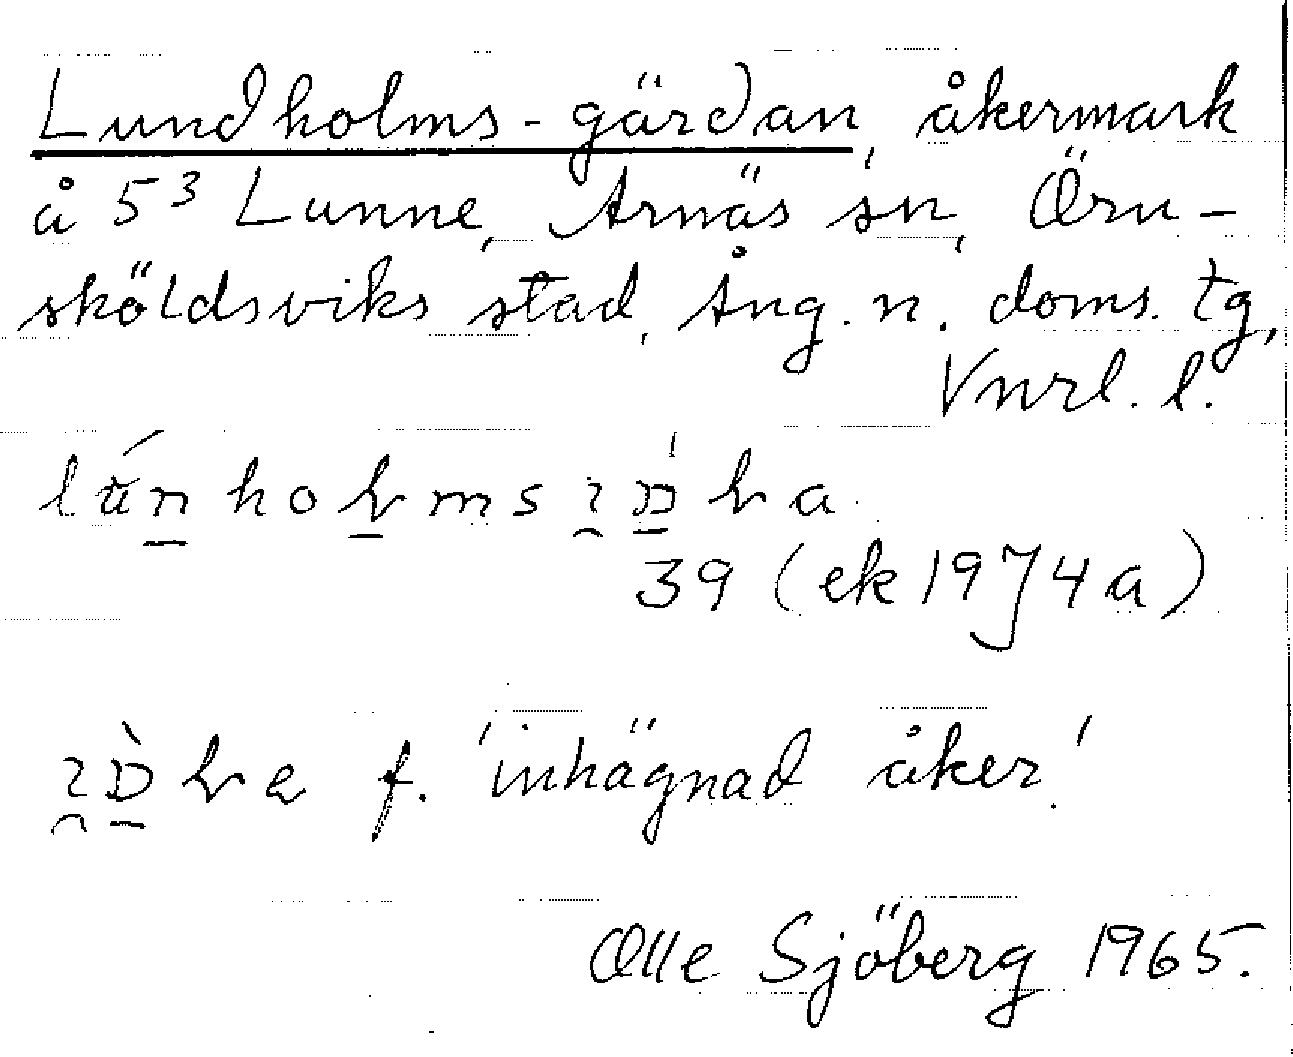 Lundholms-gärdan, åkermark
å 5³ Lunne, Arnäs sn, Örn-
sköldsviks stad, Ång. n. doms. tg,
Vnrl. l.
39 (ek 1974 a)
f. 'inhägnad åker'.
Olle Sjöberg 1965.